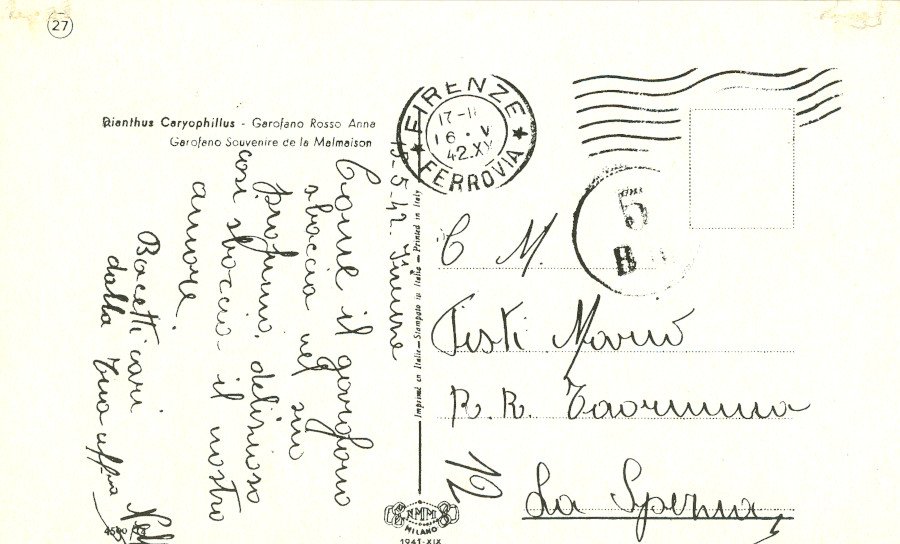 27
Dianthus Caryophillus - Garofano Rosso Anna
Garofano Souvenire de la Malmaison
15-5-42. Firenze
Come il garofano
sboccia nel suo
profumo delizioso
così sboccia il nostro
amore.
Bacetti cari
dalla tua aff.ma
4590/
Imprimé en Italie - Stampato in Italia - Printed in Italy
NMM
MILANO
1941-XIX
FIRENZE
17-18
16 · V
42.XX
FERROVIA
5
C M.
Testi Mario
R. R. Taormina
12
La Spezia